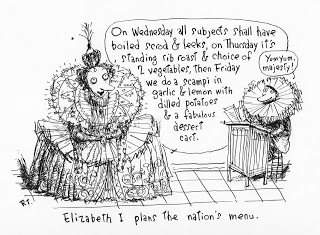 On Wednesday all subjects shall have
boiled scrod & leeks, on Thursday it's
standing rib roast & choice of
2 vegetables, then Friday
we do a scampi in
garlic & lemon with
dilled potatoes
& a fabulous
dessert
cart.
Yum yum,
majesty!
R.T.
Elizabeth I plans the nation's menu.